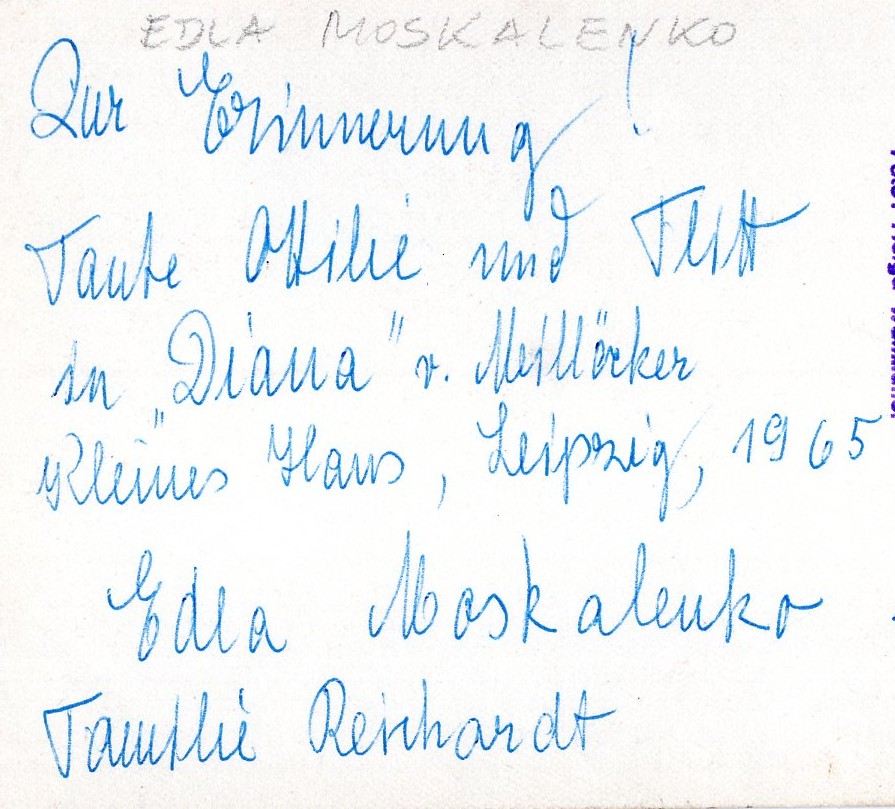 EDLA MOSKALENKO
Zur Erinnerung!
Tante Ottilie und Flitt
in „Diana“ v. Millöcker
Kleines Haus, Leipzig, 1965
Edla Moskalenko
Familie Reichardt